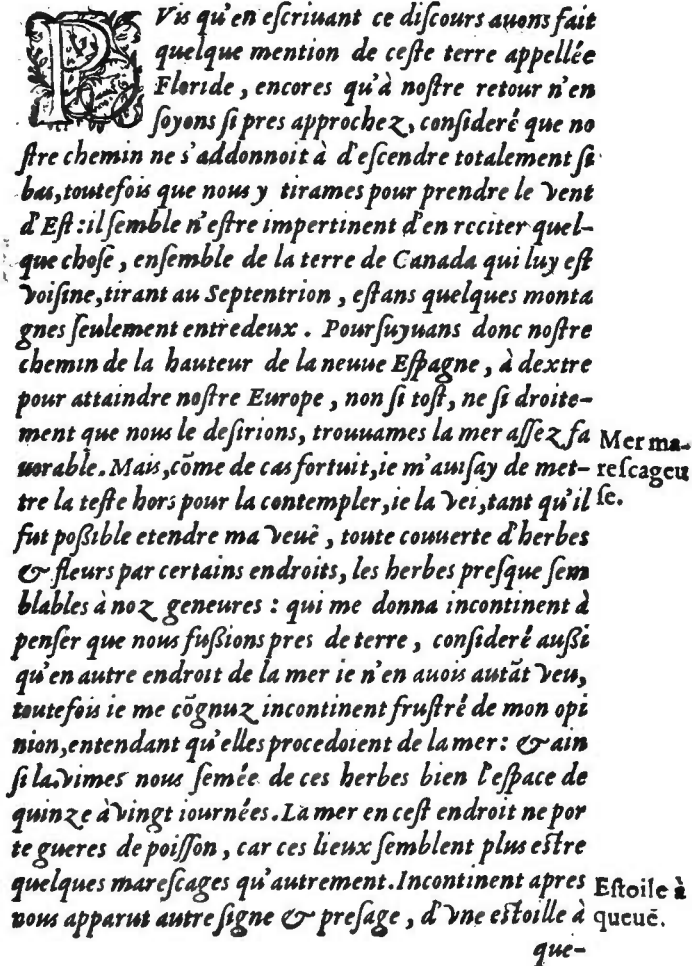 PVis qu'en eſcriuant ce diſcours auons fait
quelque mention de ceſte terre appellée
Floride, encores qu'à noſtre retour n'en
ſoyons ſi pres approchez, conſideré que no
ſtre chemin ne s'addonnoit à d'eſcendre totalement ſi
bas, toutefois que nous y tirames pour prendre le vent
d'Eſt: il ſemble n'eſtre impertinent d'en reciter quel-
que choſe, enſemble de la terre de Canada qui luy eſt
voiſine, tirant au Septentrion, eſtans quelques monta
gnes ſeulement entredeux. Pourſuyuans donc noſtre
chemin de la hauteur de la neuue Eſpagne, à dextre
pour attaindre noſtre Europe, non ſi toſt, ne ſi droite-
ment que nous le deſirions, trouuames la mer aſſez fa
uorable. Mais, cõme de cas fortuit, ie m'auiſay de met-
tre la teſte hors pour la contempler, ie la vei, tant qu'il
fut poßible etendre ma veuë, toute couuerte d'herbes
& fleurs par certains endroits, les herbes preſque ſem
blables à noz geneures: qui me donna incontinent à
penſer que nous fußions pres de terre, conſideré außi
qu'en autre endroit de la mer ie n'en auois autãt veu,
toutefois ie me cõgnuz incontinent fruſtré de mon opi
nion, entendant qu'elles procedoient de la mer: & ain
ſi la vimes nous ſemée de ces herbes bien l'eſpace de
quinze à vingt iournées. La mer en ceſt endroit ne por
te gueres de poiſſon, car ces lieux ſemblent plus eſtre
quelques mareſcages qu'autrement. Incontinent apres
nous apparut autre ſigne & preſage, d'vne eſtoille à
que-
Mer ma-
reſcageu
ſe.
Eſtoile à
queuë.